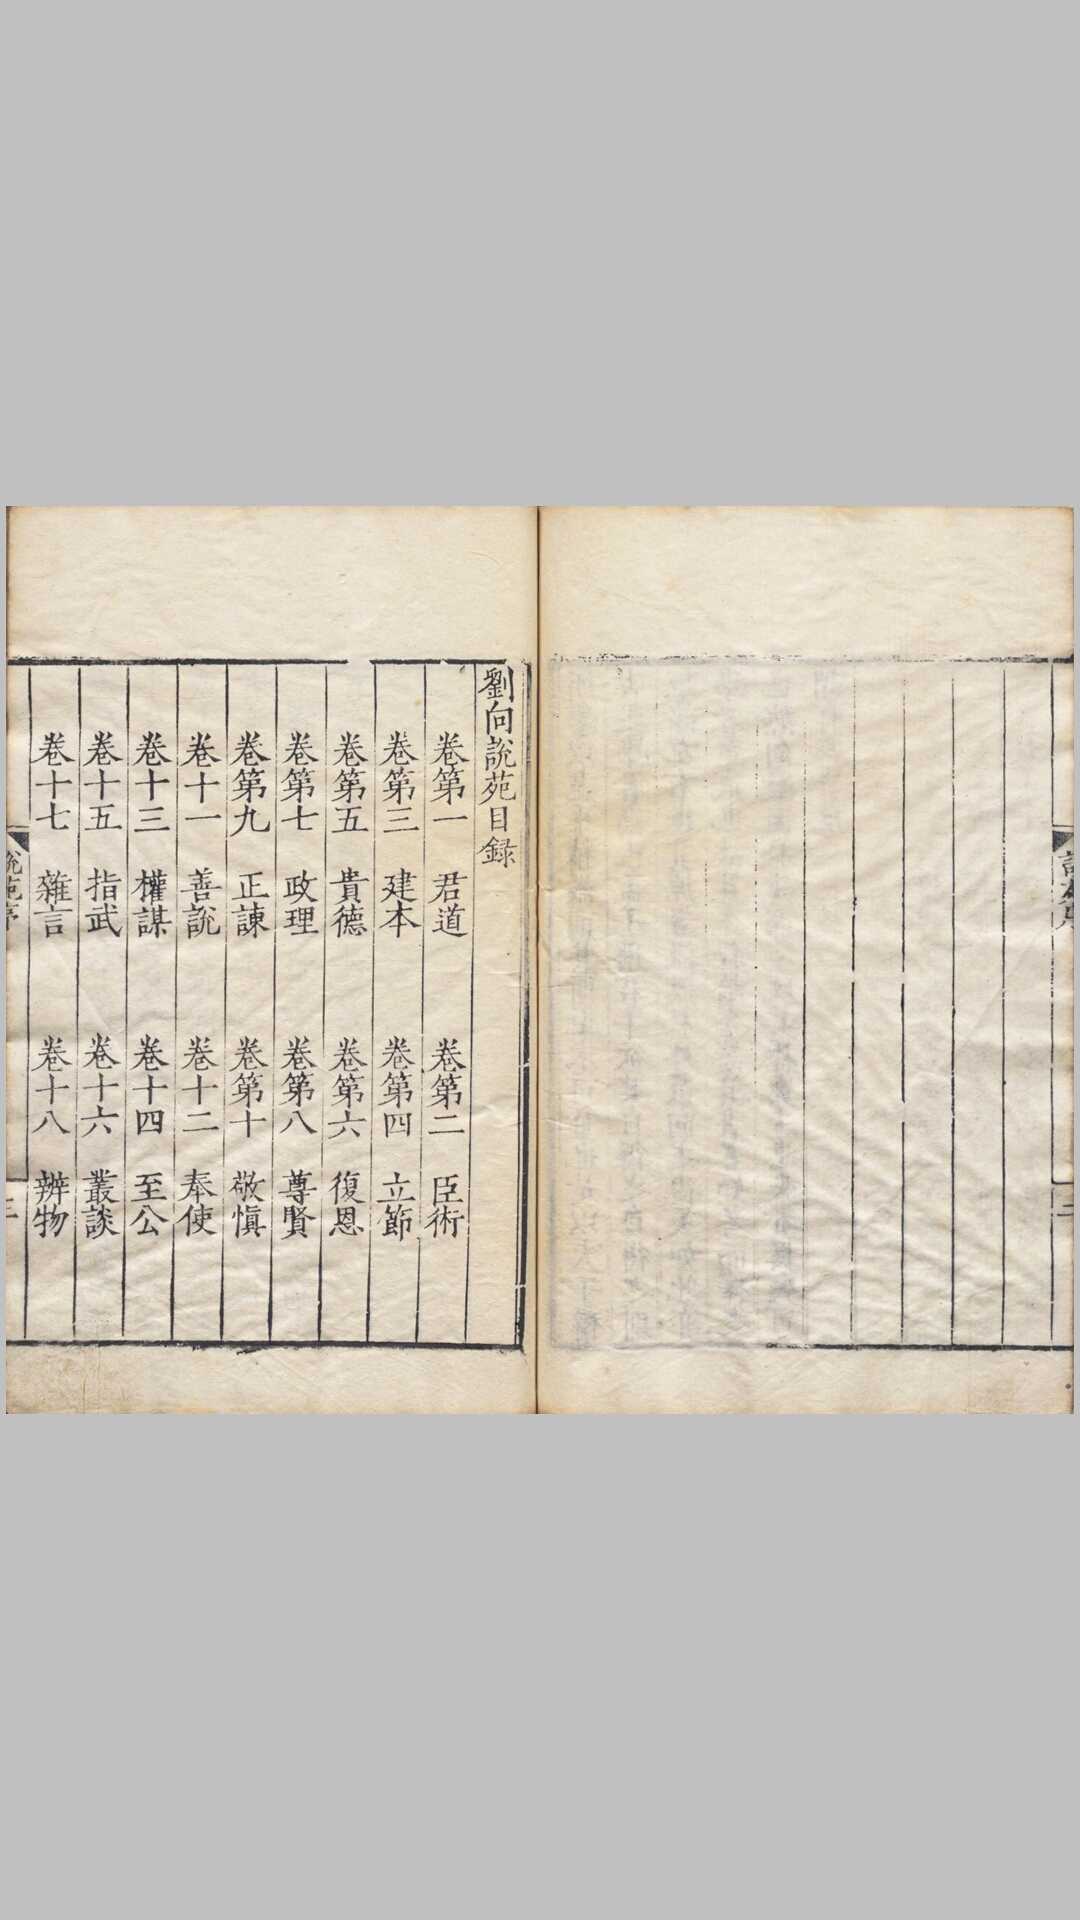 說苑序
二
劉向說苑目録
卷第一 君道 卷第二 臣術
卷第三 建本 卷第四 立節
卷第五 貴德 卷第六 復恩
卷第七 政理 卷第八 尊賢
卷第九 正諫 卷第十 敬慎
卷十一 善說 卷十二 奉使
卷十三 權謀 卷十四 至公
卷十五 指武 卷十六 叢談
卷十七 雜言 卷十八 辨物
說苑序